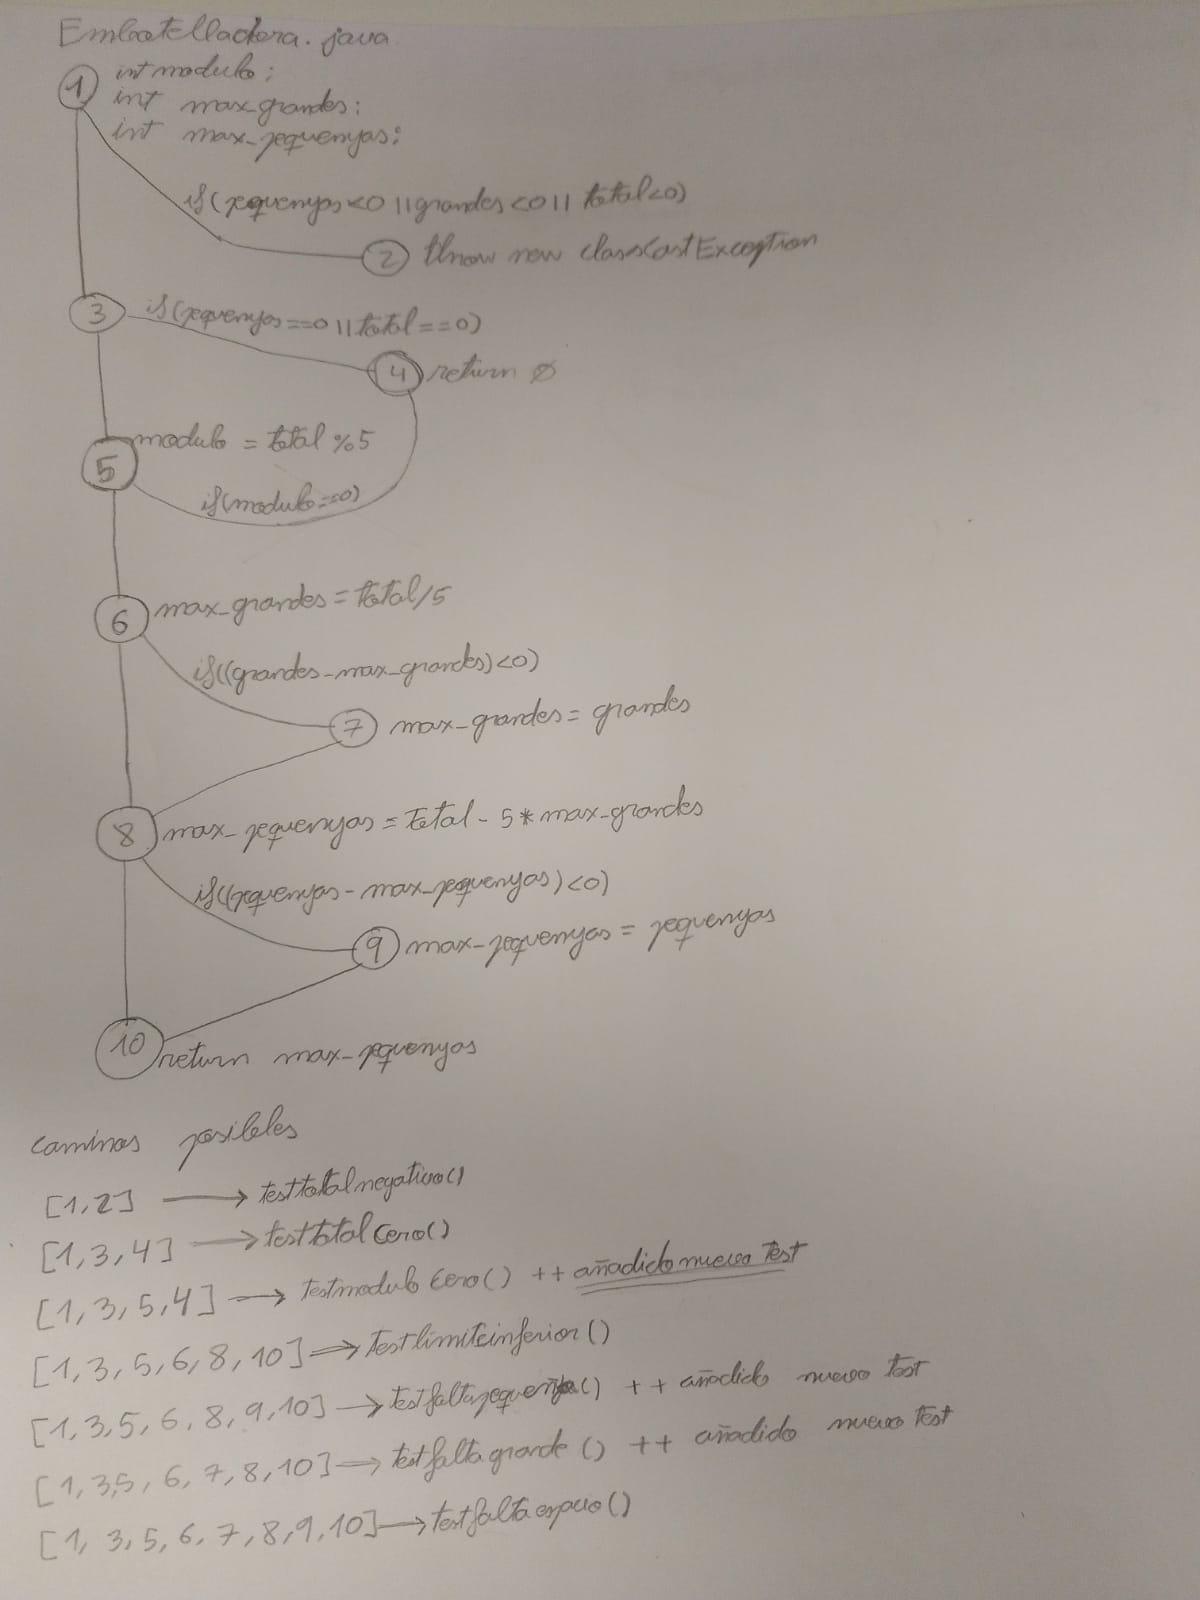 Embotelladora.java
1 int modulo;
int max_grandes;
int max_pequenyas;
if(pequenyas<0 || grandes<0 || total<0)
2 throw new classCastException
3 if(pequenyas==0 || total==0)
4 return Ø
modulo = total %5
5
if(modulo==0)
6 max_grandes = total/5
if((grandes-max_grandes)<0)
7 max_grandes = grandes
8 max_pequenyas = Total - 5 * max_grandes
if((pequenyas - max_pequenyas)<0)
9 max_pequenyas = pequenyas
10 return max_pequenyas
caminos posibles
[1,2] → testtotalnegativo()
[1,3,4] → testtotalCero()
[1,3,5,4] → Testmodulo Cero() ++ añadido nuevo Test
[1,3,5,6,8,10] → Testlimiteinferior()
[1,3,5,6,8,9,10] → testfaltapequenya() ++ añadido nuevo Test
[1,3,5,6,7,8,10] → testfalta grande () ++ añadido nuevo Test
[1,3,5,6,7,8,9,10] → testfaltaespacio()